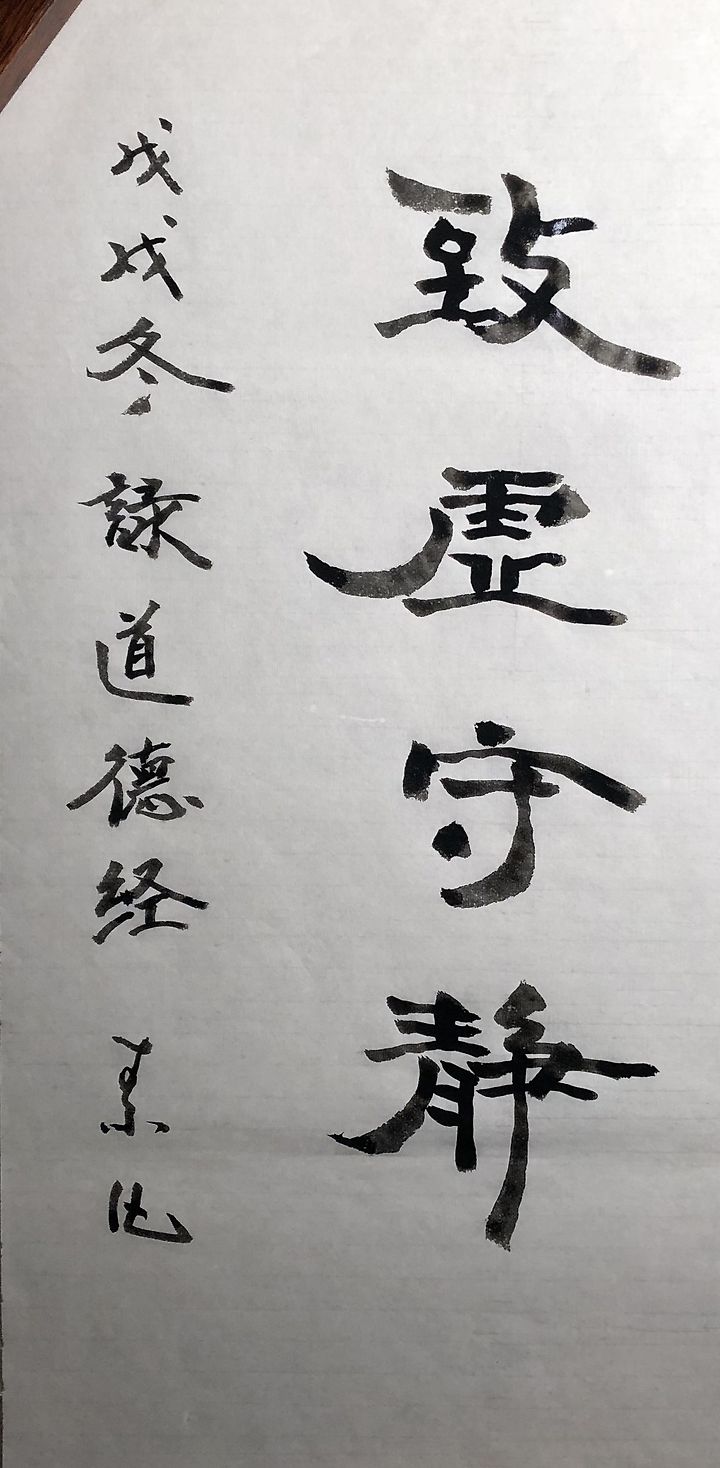 致虚守静
戊戌冬 録道德经 素